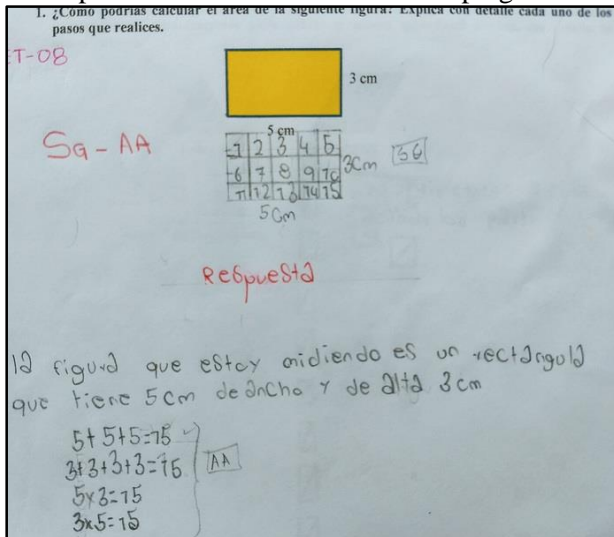 1. ¿Cómo podrías calcular el área de la siguiente figura? Explica con detalle cada uno de los
pasos que realices.
T-08
3 cm
5 cm
SG - AA
1 2 3 4 5
6 7 8 9 10
11 12 13 14 15
3Cm
SG
5Cm
Respuesta
la figura que estoy midiendo es un rectangula
que tiene 5 cm de ancho y de alta 3 cm
5+5+5=15
3+3+3+3=15
AA
5x3=15
3x5=15